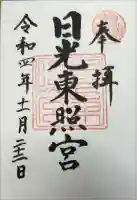 奉拝
日光東照宮
令和四年十一月二十三日